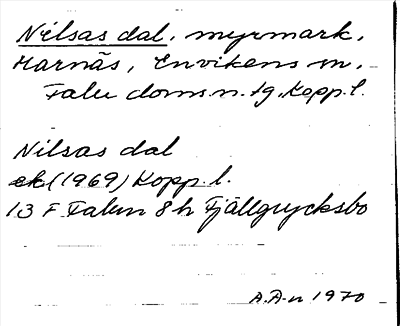 Nilsas dal, myrmark,
Marnäs, Envikens sn.
Falu doms.n. tg. Kopp. l.
Nilsas dal
ek (1969) Kopp. l.
13 F Falun 8 h Fjällgrycksbo
A.A-n 1970